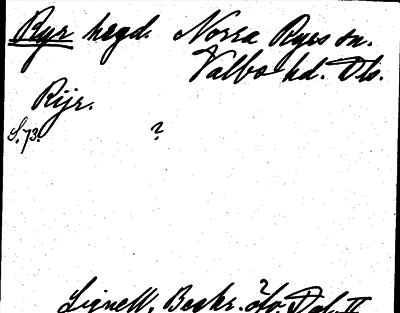 Ryr hegd. Norra Ryrs sn.
Valbo hd. Dls.
Rijr.
S. 73. ?
Lignell, Beskr. öfv. Dal. II